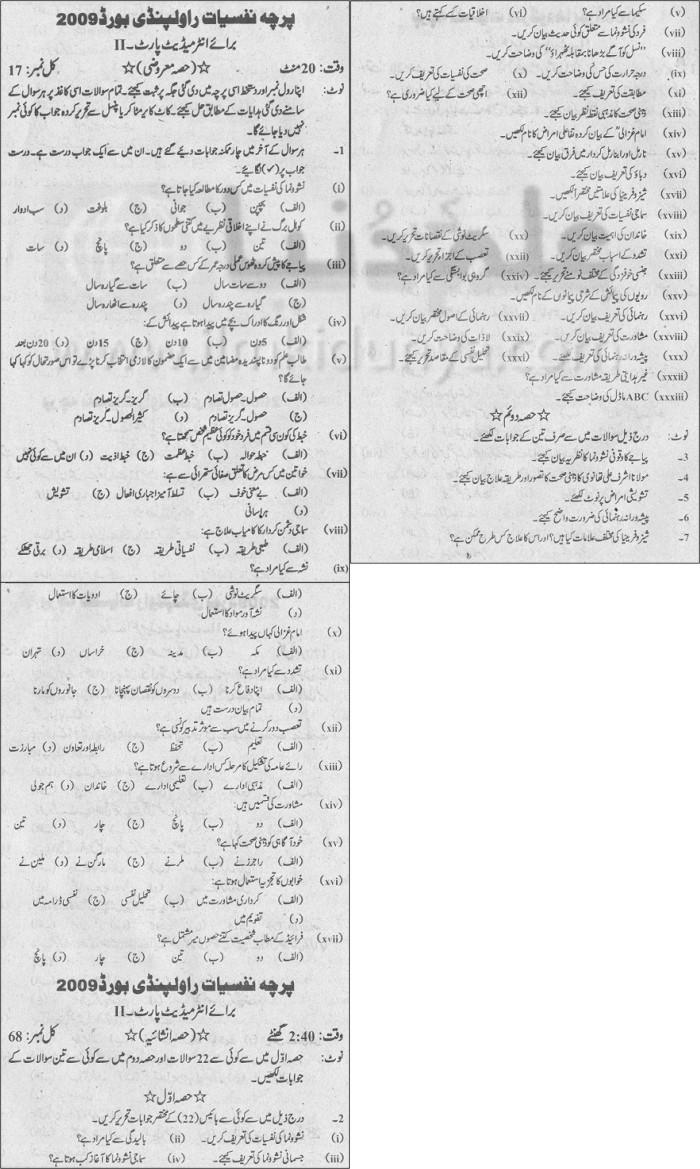 پرچہ نفسیات راولپنڈی بورڈ 2009
برائے انٹرمیڈیٹ پارٹ۔ II
وقت: 20 منٹ ☆(حصہ معروضی)☆ کل نمبر: 17
نوٹ: اپنا رول نمبر اور دستخط اسی پرچہ میں دی گئی جگہ پر ثبت کیجئے۔ تمام سوالات اسی کاغذ پر ہر سوال کے
سامنے دی گئی ہدایات کے مطابق حل کیجئے۔ کاٹ کر یا مٹا کر یا پنسل سے تحریر کردہ جواب کا کوئی نمبر
نہیں دیا جائے گا۔
1۔ ہر سوال کے آخر میں چار ممکنہ جوابات دیے گئے ہیں۔ ان میں سے ایک جواب درست ہے۔ درست
جواب پر (✓) لگائیے۔
(i) نشوونما کی نفسیات میں کس دور کا مطالعہ کیا جاتا ہے؟
(الف) بچپن (ب) جوانی (ج) بلوغت (د) سب ادوار
(ii) کوہل برگ نے اپنے اخلاقی نظریے میں کتنی سطحوں کا ذکر کیا ہے؟
(الف) تین (ب) دو (ج) پانچ (د) سات
(iii) پیاجے کا پیش کردہ ٹھوس عملی درجہ عمر کے کس حصے سے متعلق ہے؟
(الف) دو سے سات سال (ب) سات سے گیارہ سال
(ج) گیارہ سے پندرہ سال (د) پندرہ سے اٹھارہ سال
(iv) شکل اور رنگ کا ادراک بچے میں پیدا ہوتا ہے پیدائش کے:
(الف) 5 دن (ب) 10 دن (ج) 15 دن (د) 20 دن بعد
(v) طالب علم کو دو ناپسندیدہ مضامین میں سے ایک مضمون کا لازمی انتخاب کرنا پڑے تو اس صورتحال کو کیا کہا
جائے گا؟
(الف) حصول۔حصول تصادم (ب) گریز۔گریز تصادم
(ج) حصول۔گریز تصادم (د) کثیر الحصول۔گریز تصادم
(vi) خبط کی کون سی قسم میں فرد خود کو کوئی عظیم شخص سمجھتا ہے؟
(الف) خبط حوالہ (ب) خبط عظمت (ج) خبط اذیت (د) ان میں سے کوئی نہیں
(vii) خواتین میں کس مرض کا تعلق صفائی ستھرائی سے ہے:
(الف) بے معنی خوف (ب) تسلط آمیز اجباری افعال (ج) تشویش
(د) ہراسانی
(viii) سماجی دشمن کردار کا کامیاب علاج ہے:
(الف) طبی طریقہ (ب) نفسیاتی طریقہ (ج) اسلامی طریقہ (د) برقی جھٹکے
(ix) نشہ سے کیا مراد ہے؟
(الف) سگریٹ نوشی (ب) چائے (ج) ادویات کا استعمال
(د) نشہ آور مواد کا استعمال
(x) امام غزالی کہاں پیدا ہوئے؟
(الف) مکہ (ب) مدینہ (ج) خراساں (د) تہران
(xi) تشدد سے کیا مراد ہے؟
(الف) اپنا دفاع کرنا (ب) دوسروں کو نقصان پہنچانا (ج) جانوروں کو مارنا
(د) تمام بیان درست ہیں
(xii) تعصب دور کرنے میں سب سے موثر تدبیر کونسی ہے؟
(الف) تعلیم (ب) تحفظ (ج) رابطہ اور تعاون (د) مبارزت
(xiii) رائے عامہ کی تشکیل کا مرحلہ کس ادارے سے شروع ہوتا ہے؟
(الف) مذہبی ادارے (ب) تعلیمی ادارے (ج) خاندان (د) ہم جولی
(xiv) مشاورت کی قسمیں ہیں:
(الف) دو (ب) پانچ (ج) چار (د) تین
(xv) خود آگاہی کو ذہنی صحت کہا ہے؟
(الف) راجرز نے (ب) ملر نے (ج) مارگن نے (د) ملین نے
(xvi) خوابوں کا تجزیہ استعمال ہوتا ہے:
(الف) کرداری مشاورت میں (ب) تحلیل نفسی (ج) نفسی ڈرامہ میں
(د) تنویم میں
(xvii) فرائیڈ کے مطابق شخصیت کتنے حصوں پر مشتمل ہے؟
(الف) دو (ب) تین (ج) چار (د) پانچ
پرچہ نفسیات راولپنڈی بورڈ 2009
برائے انٹرمیڈیٹ پارٹ۔ II
وقت: 2:40 گھنٹے ☆(حصہ انشائیہ)☆ کل نمبر: 68
نوٹ: حصہ اوّل میں سے کوئی سے 22 سوالات اور حصہ دوم میں سے کوئی سے تین سوالات کے
جوابات لکھیں۔
☆حصہ اوّل☆
2۔ درج ذیل میں سے کوئی سے بائیس (22) کے مختصر جوابات تحریر کریں۔
(i) نشوونما کی نفسیات کی تعریف کریں۔ (ii) بالیدگی سے کیا مراد ہے؟
(iii) جسمانی نشوونما کی تعریف کیجئے۔ (iv) سماجی نشوونما کا آغاز کب ہوتا ہے؟
(v) سکیما سے کیا مراد ہے؟ (vi) اخلاقیات کسے کہتے ہیں؟
(vii) فرد کی نشوونما سے متعلق کوئی حدیث بیان کریں۔
(viii) "نسل کو آگے بڑھانا بمقابلہ ٹھہراؤ" کی وضاحت کریں۔
(ix) درجہ حرارت کی حس کی وضاحت کریں۔ (x) صحت کی نفسیات کی تعریف کریں۔
(xi) مطابقت کی تعریف کیجئے۔ (xii) اچھی صحت کے لیے کیا ضروری ہے؟
(xiii) ذہنی صحت کا مذہبی نقطہ نظر بیان کیجئے۔
(xiv) امام غزالی کے بیان کردہ نقاعلی امراض کا نام لکھیں۔
(xv) نارمل اور ابنارمل کردار میں فرق بیان کیجئے۔
(xvi) دباؤ کی تعریف کیجئے۔
(xvii) شیزوفرینیا کی علامتیں مختصراً لکھیں۔
(xviii) سماجی نفسیات کی تعریف بیان کریں۔
(xix) خاندان کی اہمیت بیان کریں۔ (xx) سگریٹ نوشی کے نقصانات تحریر کریں۔
(xxi) تشدد کے اسباب مختصر بیان کریں۔ (xxii) تعصب کے اجزاء تحریر کریں۔
(xxiii) جنسی خوفزدگی کے مختلف نمونے تحریر کیجئے۔ (xxiv) گروہی وابستگی سے کیا مراد ہے؟
(xxv) رویوں کی پیمائش کے شرحی پیمانوں کے نام لکھیں۔
(xxvi) رہنمائی کی تعریف بیان کریں۔ (xxvii) رہنمائی کے اصول مختصر بیان کریں۔
(xxviii) مشاورت کی تعریف بیان کریں۔ (xxix) لاذات کی وضاحت کریں۔
(xxx) پیشہ ورانہ رہنمائی کی تعریف لکھئے۔ (xxxi) تحلیل نفسی کے مقاصد تحریر کیجئے۔
(xxxii) غیر ہدایتی طریقہ مشاورت سے کیا مراد ہے؟
(xxxiii) ABC ماڈل کی وضاحت کیجئے۔
☆حصہ دوئم☆
نوٹ: درج ذیل سوالات میں سے صرف تین کے جوابات لکھئے۔
3۔ پیاجے کا وقوفی نشوونما کا نظریہ بیان کیجئے۔
4۔ مولانا اشرف علی تھانوی کا ذہنی صحت کا تصور اور طریقہ علاج بیان کیجئے۔
5۔ تشویشی امراض پر نوٹ لکھئے۔
6۔ پیشہ ورانہ رہنمائی کی ضرورت واضح کیجئے۔
7۔ شیزوفرینیا کی مختلف علامات کیا ہیں؟ اور اس کا علاج کس طرح ممکن ہے؟